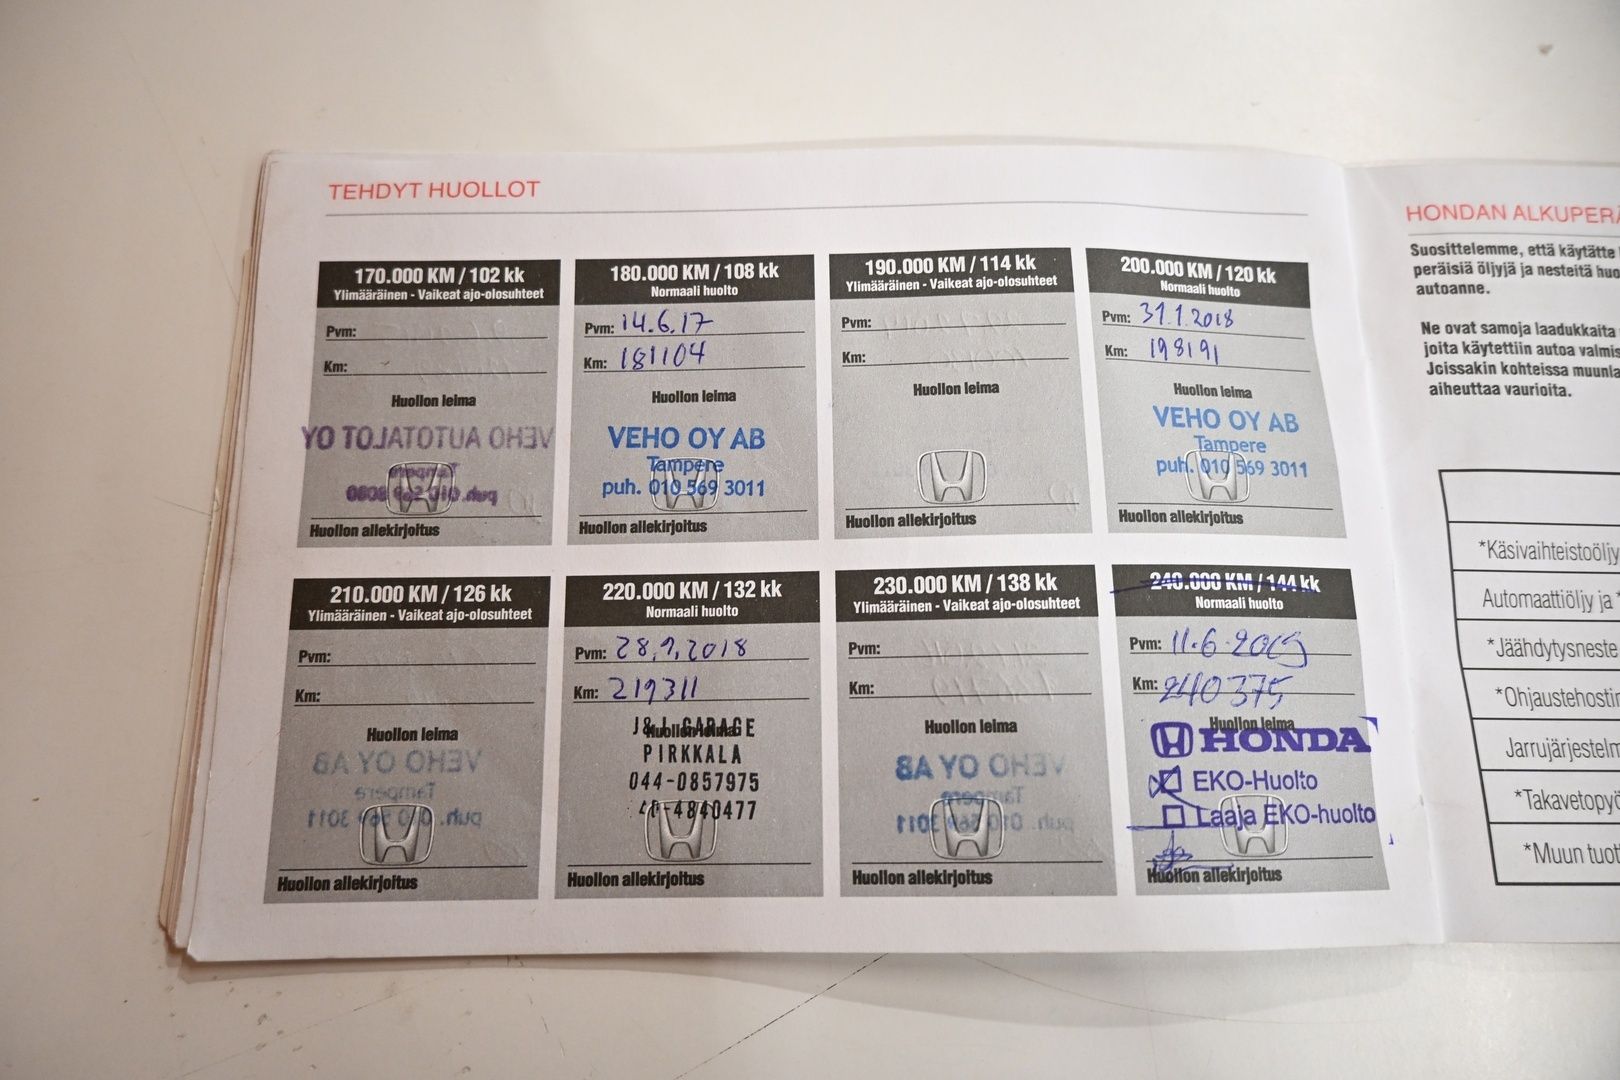 TEHDYT HUOLLOT
170.000 KM / 102 kk
Ylimääräinen - Vaikeat ajo-olosuhteet
Pvm:
Km:
Huollon leima
VEHO AUTOTALOT OY
Tampere
puh. 010 569 3080
Huollon allekirjoitus
180.000 KM / 108 kk
Normaali huolto
Pvm: 14.6.17
Km: 181104
Huollon leima
VEHO OY AB
Tampere
puh. 010 569 3011
Huollon allekirjoitus
190.000 KM / 114 kk
Ylimääräinen - Vaikeat ajo-olosuhteet
Pvm:
Km:
Huollon leima
Huollon allekirjoitus
200.000 KM / 120 kk
Normaali huolto
Pvm: 31.1.2018
Km: 198191
Huollon leima
VEHO OY AB
Tampere
puh. 010 569 3011
Huollon allekirjoitus
210.000 KM / 126 kk
Ylimääräinen - Vaikeat ajo-olosuhteet
Pvm:
Km:
Huollon leima
VEHO OY AB
Tampere
puh. 010 569 3011
Huollon allekirjoitus
220.000 KM / 132 kk
Normaali huolto
Pvm: 28.9.2018
Km: 219311
Huollon leima
J&L GARAGE
PIRKKALA
044-0857975
40-4840477
Huollon allekirjoitus
230.000 KM / 138 kk
Ylimääräinen - Vaikeat ajo-olosuhteet
Pvm:
Km:
Huollon leima
VEHO OY AB
Tampere
puh. 010 569 3011
Huollon allekirjoitus
240.000 KM / 144 kk
Normaali huolto
Pvm: 11.6.2019
Km: 240375
Huollon leima
HONDA
EKO-Huolto
Laaja EKO-huolto
Huollon allekirjoitus
HONDAN ALKUPERÄ
Suosittelemme, että käytätte
peräisiä öljyjä ja nesteitä huo
autoanne.
Ne ovat samoja laadukkaita
joita käytettiin autoa valmis
Joissakin kohteissa muunla
aiheuttaa vaurioita.
*Käsivaihteistoöljy
Automaattiöljy ja *
*Jäähdytysneste
*Ohjaustehostin
Jarrujärjestelm
*Takavetopyö
*Muun tuot